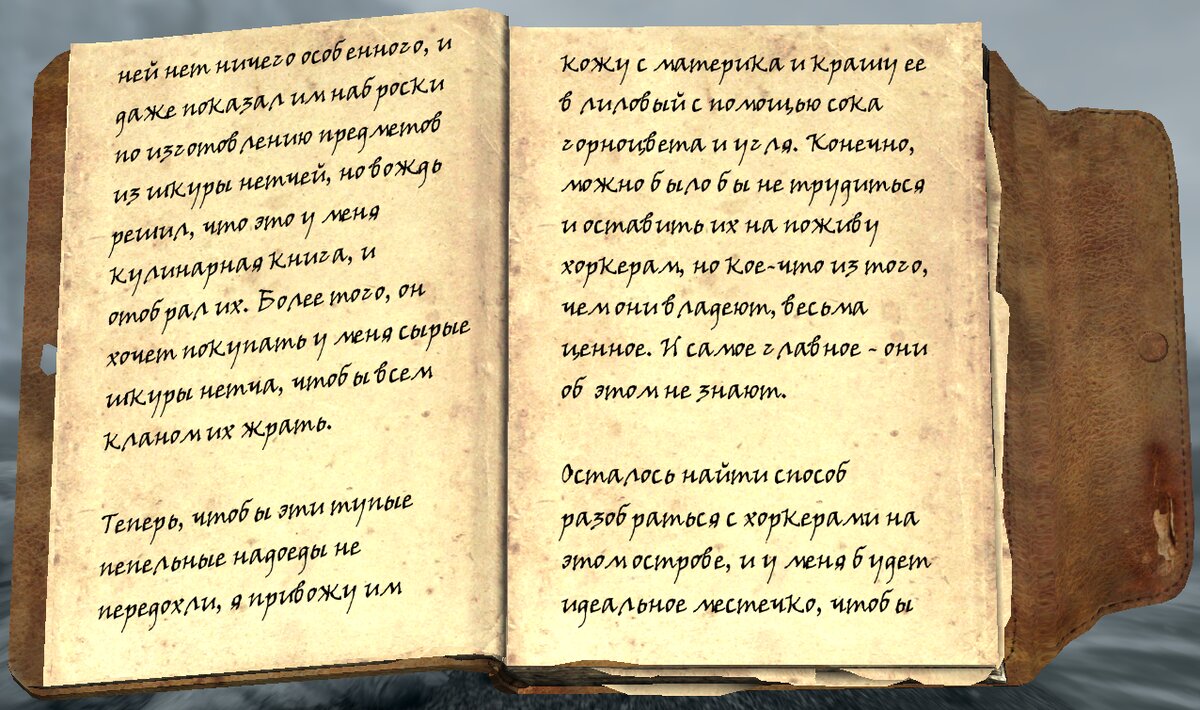 ней нет ничего особенного, и
даже показал им наброски
по изготовлению предметов
из шкуры нетчей, но вождь
решил, что это у меня
кулинарная книга, и
отобрал их. Более того, он
хочет покупать у меня сырые
шкуры нетча, чтобы всем
кланом их жрать.
Теперь, чтобы эти тупые
пепельные надоеды не
передохли, я привожу им
кожу с материка и крашу ее
в лиловый с помощью сока
горноцвета и угля. Конечно,
можно было бы не трудиться
и оставить их на поживу
хоркерам, но кое-что из того,
чем они владеют, весьма
ценное. И самое главное - они
об этом не знают.
Осталось найти способ
разобраться с хоркерами на
этом острове, и у меня будет
идеальное местечко, чтобы